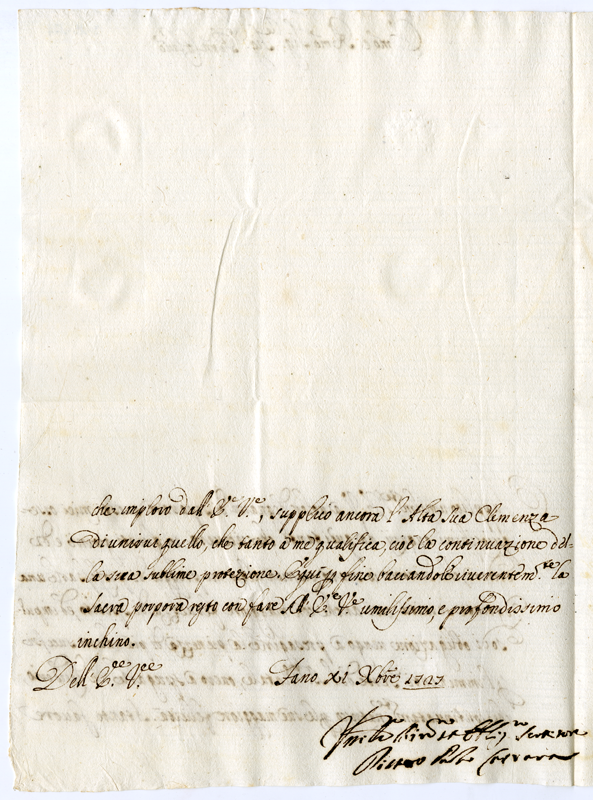 che imploro dall' E.e V.e, supplico ancora l'Alta sua Clemenza
di unirvi quello, che tanto a me qualifica, cioè la continuazione del-
la sua sublime protezione. E qui p fine baciandole riverentem.te la
sacra porpora resto con fare All' E.e V.e umilissimo, e profondissimo
inchino.
Dell' E.ee V.ee Fano xi Xbre 1727
Servitore
Pietro